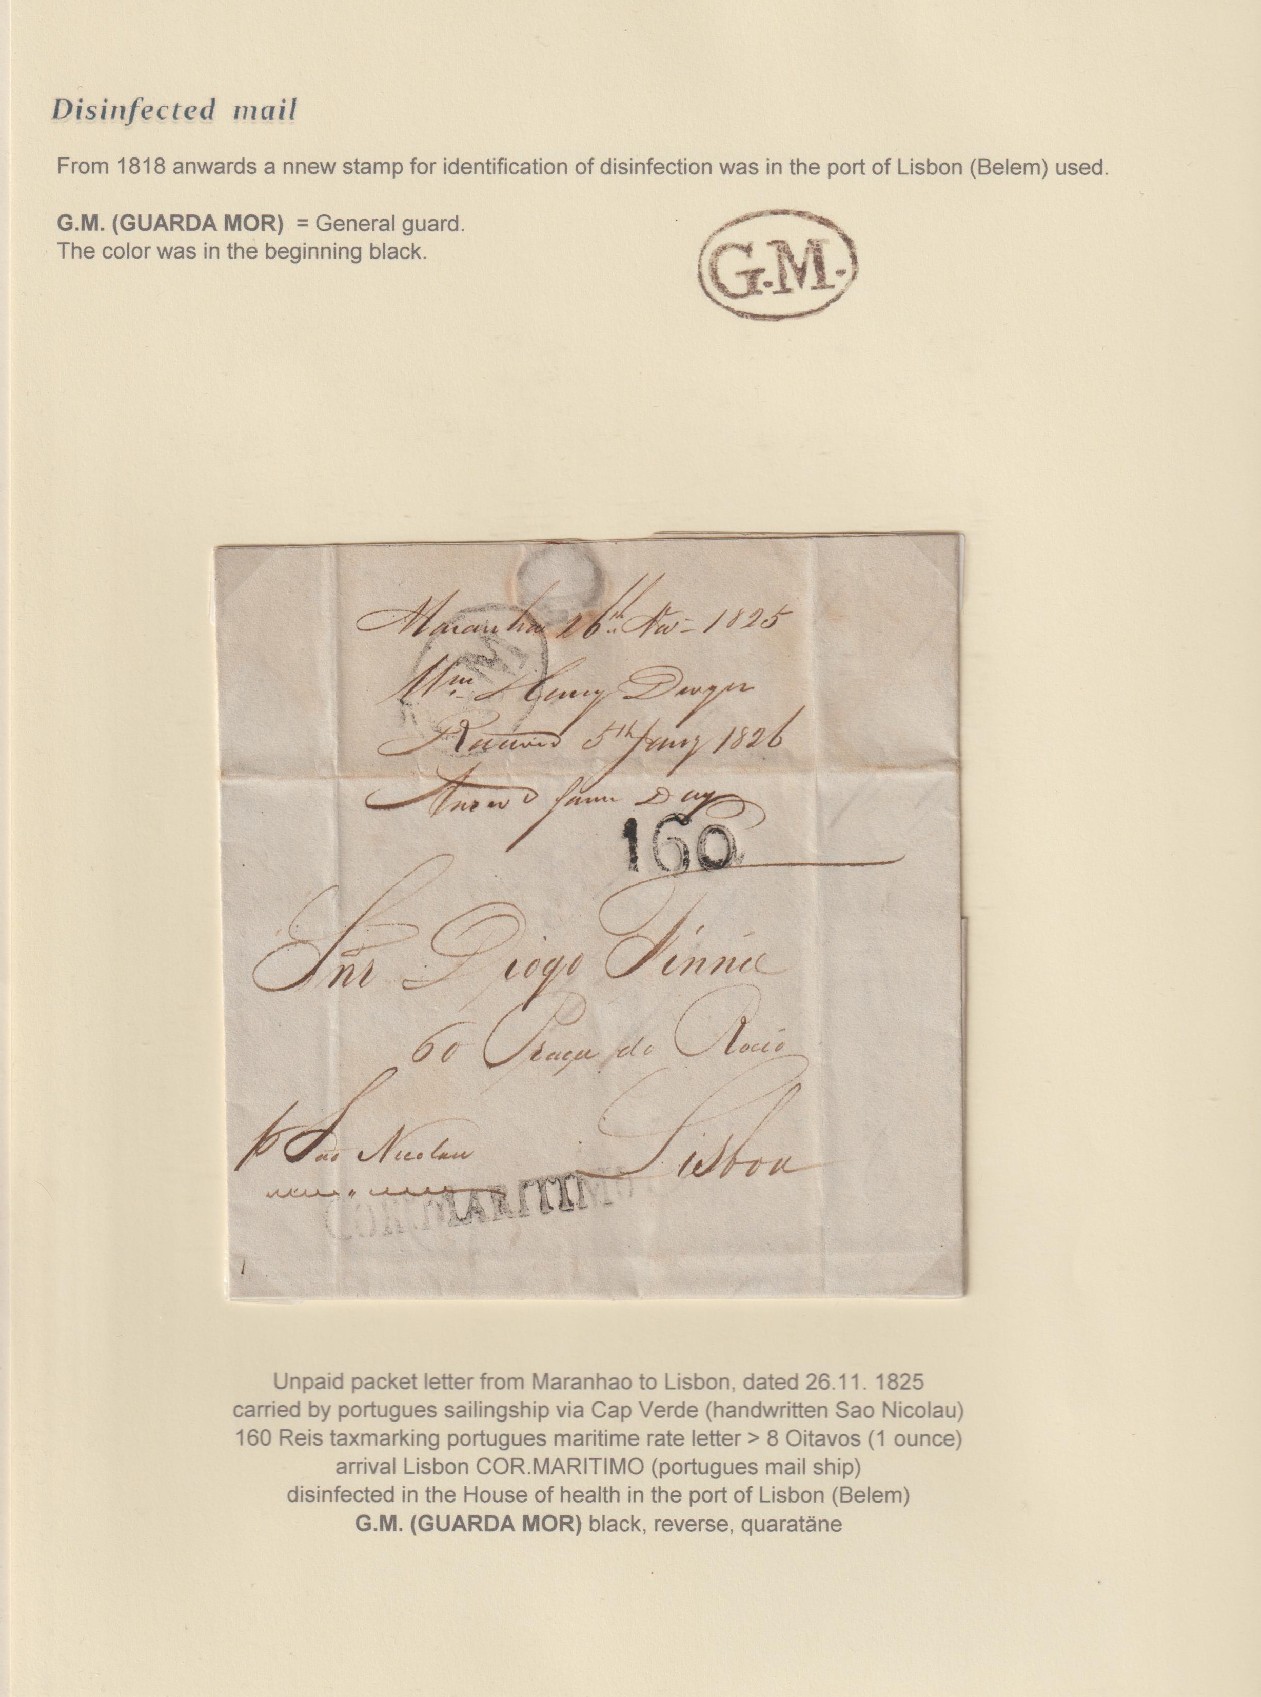 Disinfected mail
From 1818 anwards a nnew stamp for identification of disinfection was in the port of Lisbon (Belem) used.
G.M. (GUARDA MOR) = General guard.
The color was in the beginning black.
G.M.
Maranham 26th Nov 1825
Wm Henry Dwyer
Received 5th Jany 1826
Answd same Day
160
Snr Diogo Tinnie
60 Praça do Rocio
p Sao Nicolau
Lisboa
COR.MARITIMO
Unpaid packet letter from Maranhao to Lisbon, dated 26.11. 1825
carried by portugues sailingship via Cap Verde (handwritten Sao Nicolau)
160 Reis taxmarking portugues maritime rate letter > 8 Oitavos (1 ounce)
arrival Lisbon COR.MARITIMO (portugues mail ship)
disinfected in the House of health in the port of Lisbon (Belem)
G.M. (GUARDA MOR) black, reverse, quaratäne